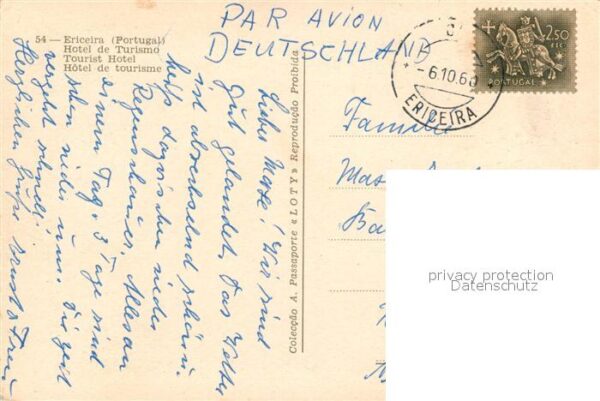 54 — Ericeira (Portugal)
Hotel de Turismo
Tourist Hotel
Hôtel de tourisme
PAR AVION
DEUTSCHLAND
2$50
PORTUGAL
6.10.60
ERICEIRA
Colecção A. Passaporte «LOTY» Reprodução Proibida
Liebe Wir sind
gut gelandet. Das Wetter
ist abwechselnd schön u.
heiß dazwischen wieder
Regenschauer. Alles an
einem Tag. 3 Tage sind
schon wieder um. Die Zeit
vergeht schnell!
Herzlichen Grüße
Familie
privacy protection
Datenschutz